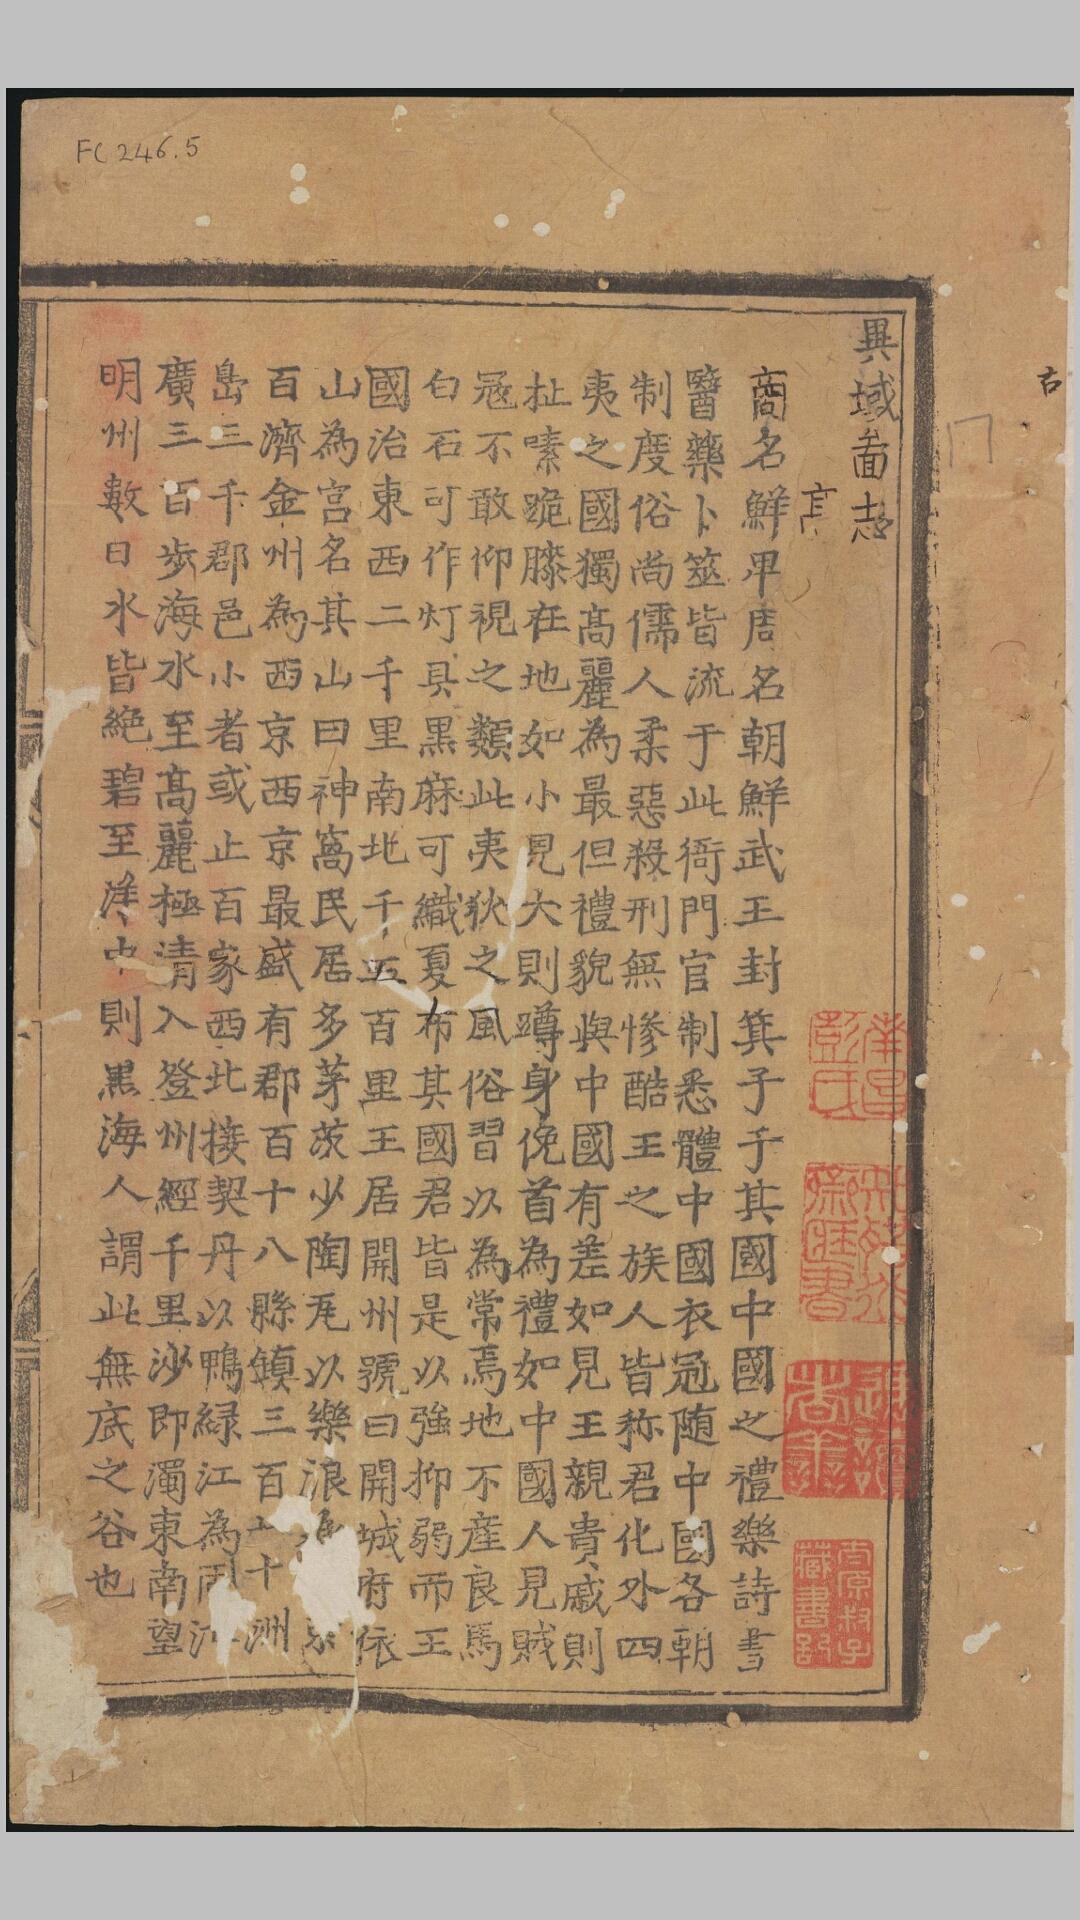 FC 246.5
古
異域啚志
高
商名鮮卑周名朝鮮武王封箕子于其國中國之禮樂詩書
醫藥卜筮皆流于此衙門官制悉體中國衣冠随中國各朝
制度俗尚儒人柔惡殺刑無慘酷王之族人皆称君化外四
夷之國獨髙麗為最但禮貌與中國有差如見王親貴戚則
扯嗉跪膝在地如小見大則蹲身俛首為禮如中國人見賊
冦不敢仰視之類此夷狄之風俗習以為常焉地不產良馬
白石可作灯具黒麻可織夏布其國君皆是以強抑弱而王
國治東西二千里南北千五百里王居開州號曰開城府依
山為宮名其山曰神窩民居多茅茨少陶瓦以樂浪為京
百濟金州為西京西京最盛有郡百十八縣鎮三百十洲
島三千郡邑小者或止百家西北接契丹以鴨緑江為江
廣三百歩海水至髙麗極清入登州經千里沙即濁東南望
明州數日水皆絶碧至洋中則黒海人謂此無底之谷也
南昌彭氏
知聖道齋藏書
遇讀者善
太原叔子藏書記